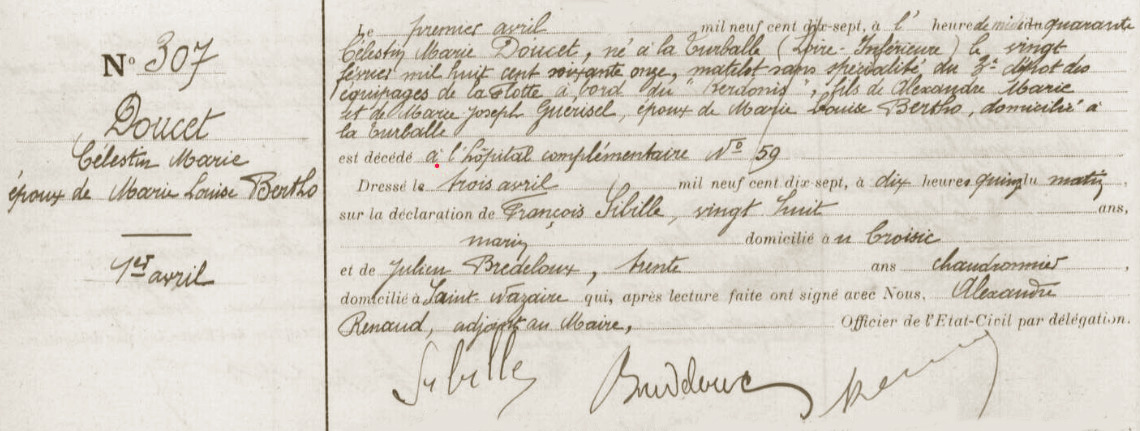 No 307
Doucet
Célestin Marie
époux de Marie Louise Bertho
1er avril
Le premier avril mil neuf cent dix-sept, à l' heure de minuit quarante
Célestin Marie Doucet, né à la Turballe (Loire-Inférieure) le vingt
février mil huit cent soixante onze, matelot sans spécialité du 3e dépôt des
équipages de la Flotte à bord du " ", fils de Alexandre Marie
et de Marie Joseph Guérisel, époux de Marie Louise Bertho, domicilié à
la Turballe
est décédé à l'hôpital complémentaire No 59
Dressé le trois avril mil neuf cent dix-sept, à dix heures quinze du matin,
sur la déclaration de François Sibille, vingt huit ans,
marin domicilié au Croisic
et de Julien Bredeloux, trente ans chaudronnier,
domicilié à Saint-Nazaire qui, après lecture faite ont signé avec Nous, Alexandre
Renaud, adjoint au Maire, Officier de l'Etat-Civil par délégation.
Sibille Bredeloux